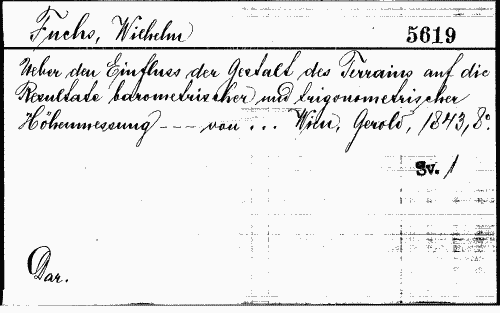 Fuchs, Wilhelm 5619
Ueber den Einfluss der Gestalt des Terrains auf die
Resultate barometrischer und trigonometrischer
Höhenmessung --- von ... Wien, Gerold, 1843, 8°.
Sv. 1
Dar.